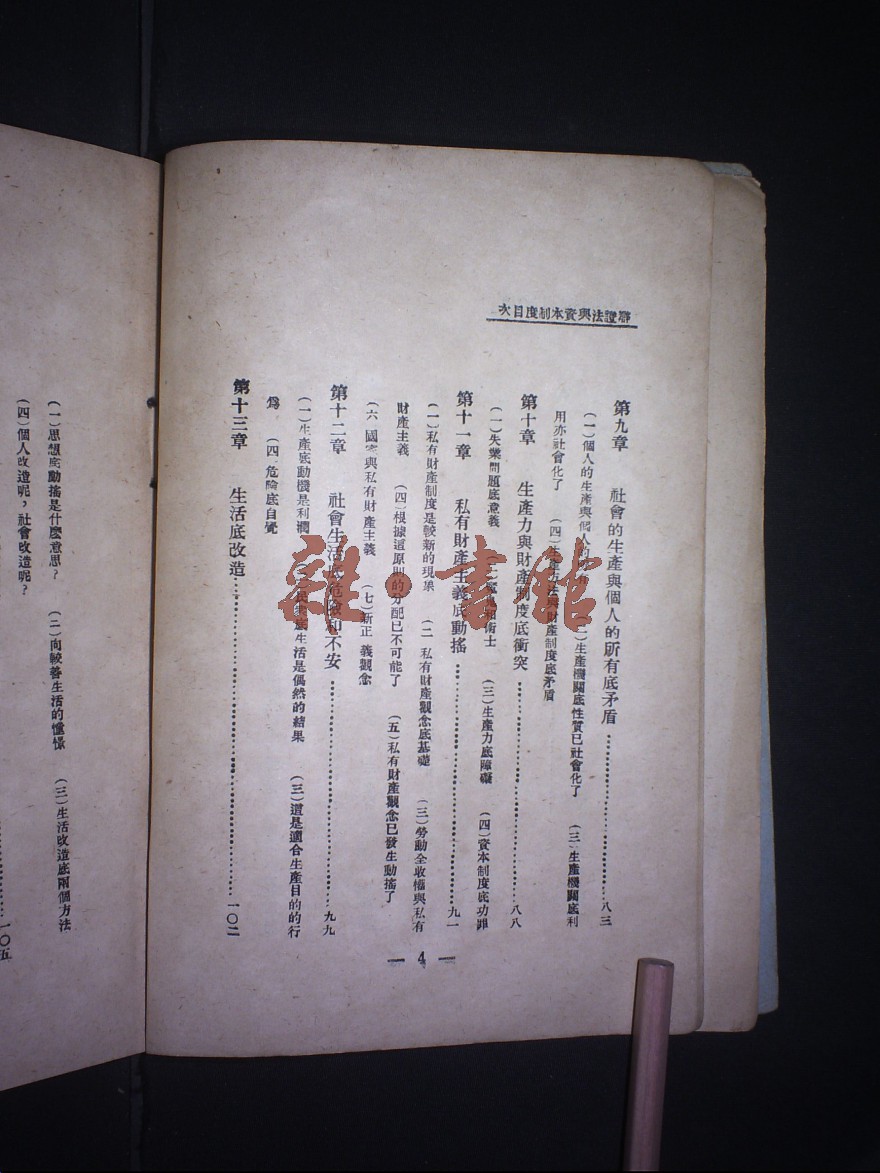 辯證法與資本制度目次
第九章 社會的生產與個人的所有底矛盾……八三
(一)個人的生產與個人的所有 (二)生產機關底性質已社會化了 (三)生產機關底利
用亦社會化了 (四)生產方法與財產制度底矛盾
第十章 生產力與財產制度底衝突……八八
(一)失業問題底意義 術士 (三)生產力底障礙 (四)資本制度底功罪
第十一章 私有財產主義底動搖……九一
(一)私有財產制度是較新的現象 (二)私有財產觀念底基礎 (三)勞動全收權與私有
財產主義 (四)根據這原則的分配已不可能了 (五)私有財產觀念已發生動搖了
(六)國家與私有財產主義 (七)新正義觀念
第十二章 社會生活底危險和不安……九九
(一)生產底動機是利潤 民衆底生活是偶然的結果 (三)這是適合生產目的的行
爲 (四)危險底自覺
第十三章 生活底改造……一〇二
— 4 —
(一)思想底動搖是什麼意思? (二)向較善生活的憧憬 (三)生活改造底兩個方法
(四)個人改造呢,社會改造呢?
……一〇五
雜·書館